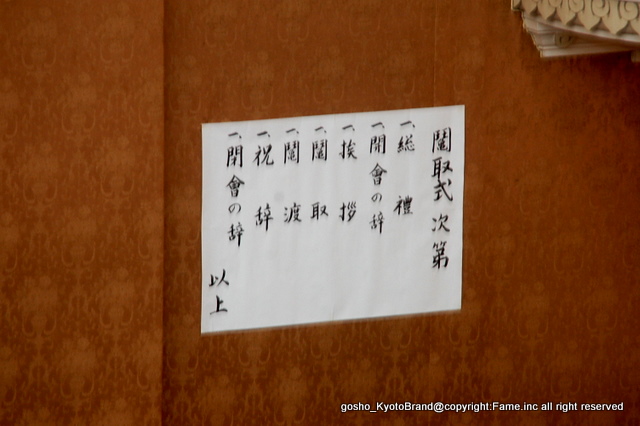 鬮取式次第
一、総禮
一、開會の辞
一、挨拶
一、鬮取
一、鬮渡
一、祝辞
一、閉會の辞
以上
gosho_KyotoBrand@copyright:Fame.inc all right reserved